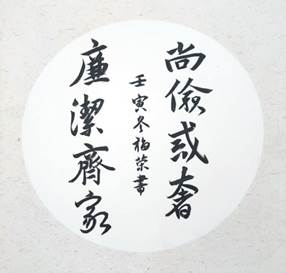 尚儉戒奢
廉潔齊家
壬寅冬福榮書